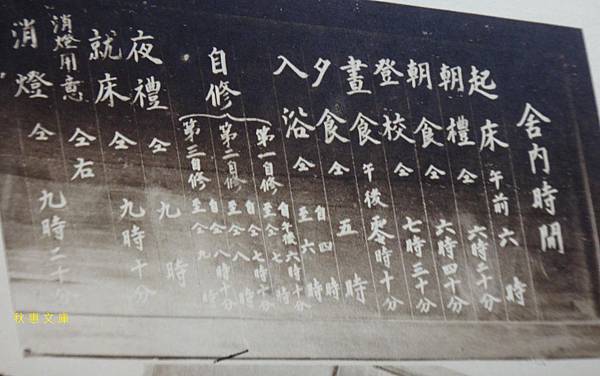 舍内時間
起床 午前六時
朝禮 仝 六時二十分
朝食 仝 六時四十分
登校 仝 七時三十分
晝食 午後零時十分
夕食 仝 五時
入浴 仝 自四時 至六時
自修
第一自修 自午後六時十分 至仝七時
第二自修 自仝七時十分 至仝八時
第三自修 自仝八時十分 至仝九時
夜禮 仝 九時
就床 仝 九時十分
消燈用意 仝右
消燈 仝 九時二十分
秋惠文庫